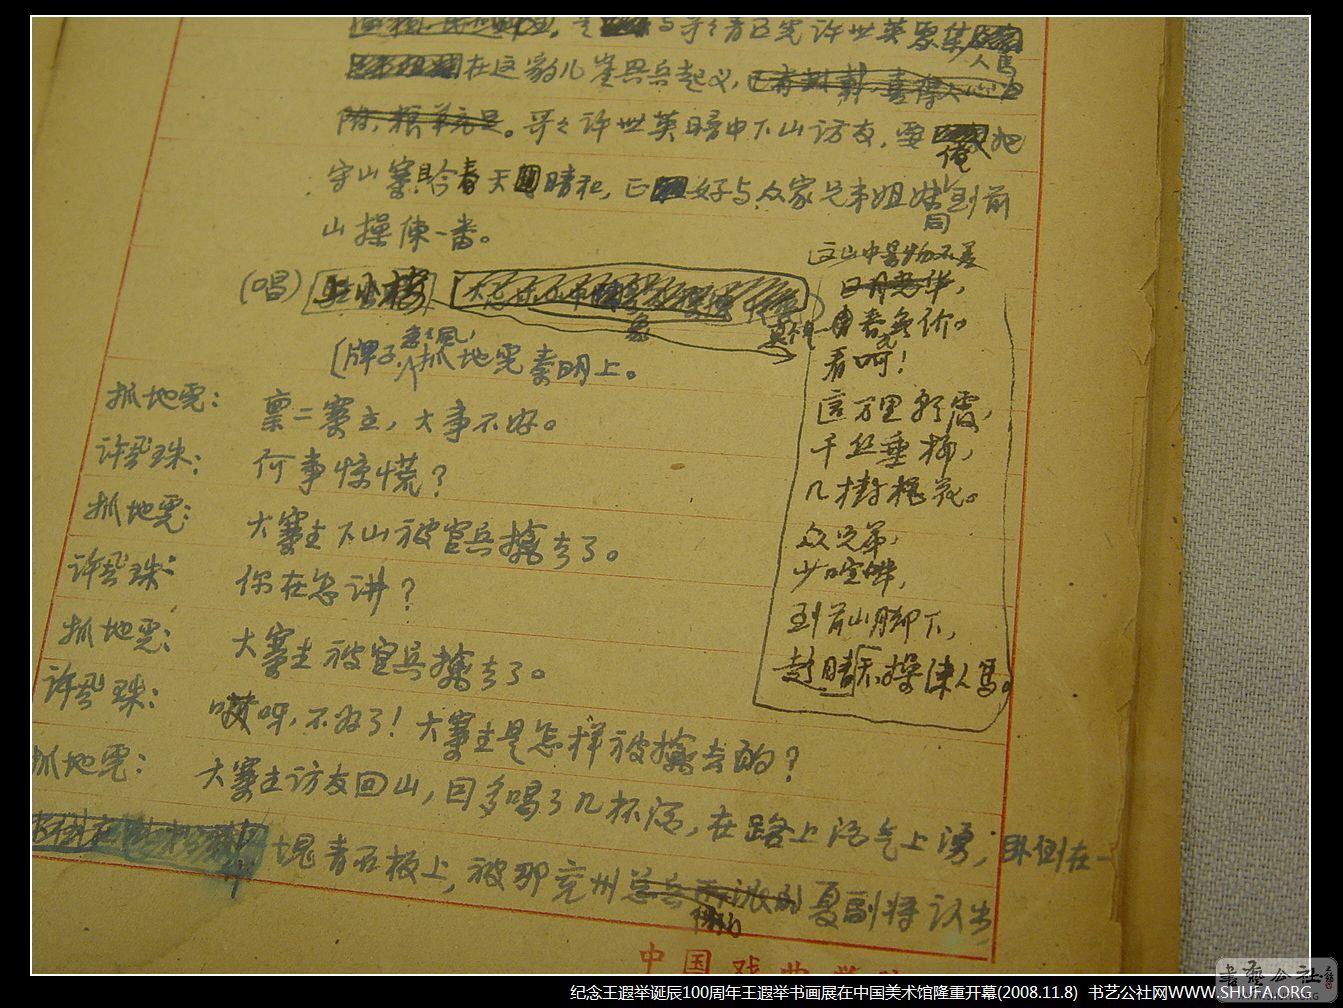 与哥々青石寨许世英聚集
人馬
在这家儿崖兴兵起义,
。哥々许世英暗中下山访友,要俺把
守山寨。且喜春天晴和,正好与众家兄弟姐妹同到前
山操练一番。
(唱)
[牌子,急急風,抓地虎秦明上。
抓地虎: 禀二寨主,大事不好。
许飛珠: 何事惊慌?
抓地虎: 大寨主下山被官兵擒去了。
许飛珠: 你在怎讲?
抓地虎: 大寨主被官兵擒去了。
许飛珠: 哎呀,不好了!大寨主是怎样被擒去的?
抓地虎: 大寨主访友回山,因多喝了几杯酒,在路上酒气上湧,卧倒在一
块青石板上,被那兖州夏副将认出
这山中景物不差
日月光华,
青春无价。
看呵!
这万里新霞,
千丝垂柳,
几樹桃花。
众兄弟,
少喧哗,
到前山脚下,
趁晴天,操練人馬。
中国戏曲学院
纪念王遐举诞辰100周年王遐举书画展在中国美术馆隆重开幕(2008.11.8) 书艺公社网WWW.SHUFA.ORG
書藝公社